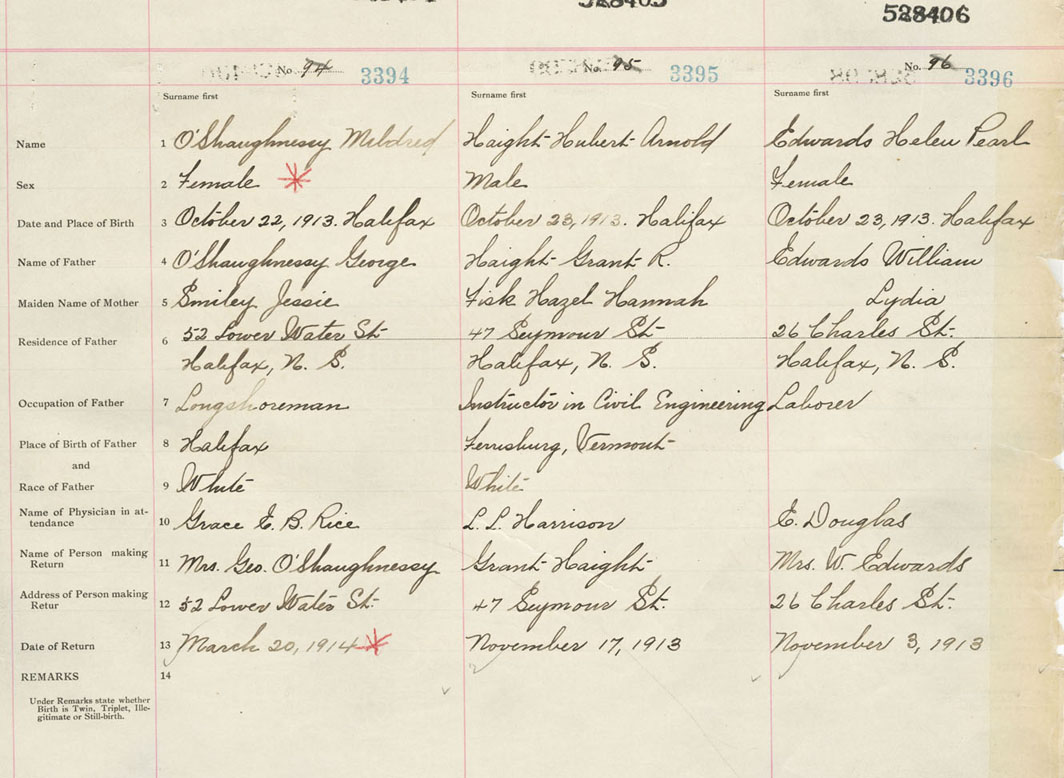 528406
No. 94 3394 No. 95 3395 No. 96 3396
Surname first Surname first Surname first
Name 1 O'Shaughnessy Mildred Haight Hubert Arnold Edwards Helen Pearl
Sex 2 Female Male Female
Date and Place of Birth 3 October 22, 1913. Halifax October 23, 1913. Halifax October 23, 1913. Halifax
Name of Father 4 O'Shaughnessy George Haight Grant R. Edwards William
Maiden Name of Mother 5 Smiley Jessie Fisk Hazel Hannah Lydia
Residence of Father 6 52 Lower Water St. 47 Seymour St. 26 Charles St.
Halifax, N. S. Halifax, N. S. Halifax, N. S.
Occupation of Father 7 Longshoreman Instructor in Civil Engineering Laborer
Place of Birth of Father 8 Halifax Ferrisburg, Vermont
and
Race of Father 9 White White
Name of Physician in at-
tendance 10 Grace E. B. Rice L. L. Harrison E. Douglas
Name of Person making
Return 11 Mrs. Geo. O'Shaughnessy Grant Haight Mrs. W. Edwards
Address of Person making
Retur 12 52 Lower Water St. 47 Seymour St. 26 Charles St.
Date of Return 13 March 20, 1914 November 17, 1913 November 3, 1913
REMARKS 14
Under Remarks state whether
Birth is Twin, Triplet, Ille-
gitimate or Still-birth.